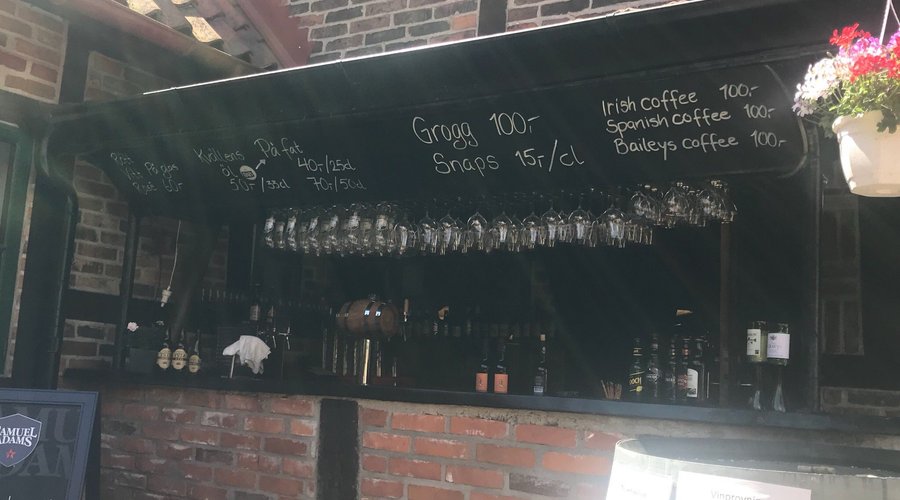 På glas
Kvällens
öl
50:-/33cl
På fat
40:-/25cl
70:-/50cl
Grogg 100:-
Snaps 15:-/cl
Irish coffee 100:-
Spanish coffee 100:-
Baileys coffee 100:-
SAMUEL
ADAMS